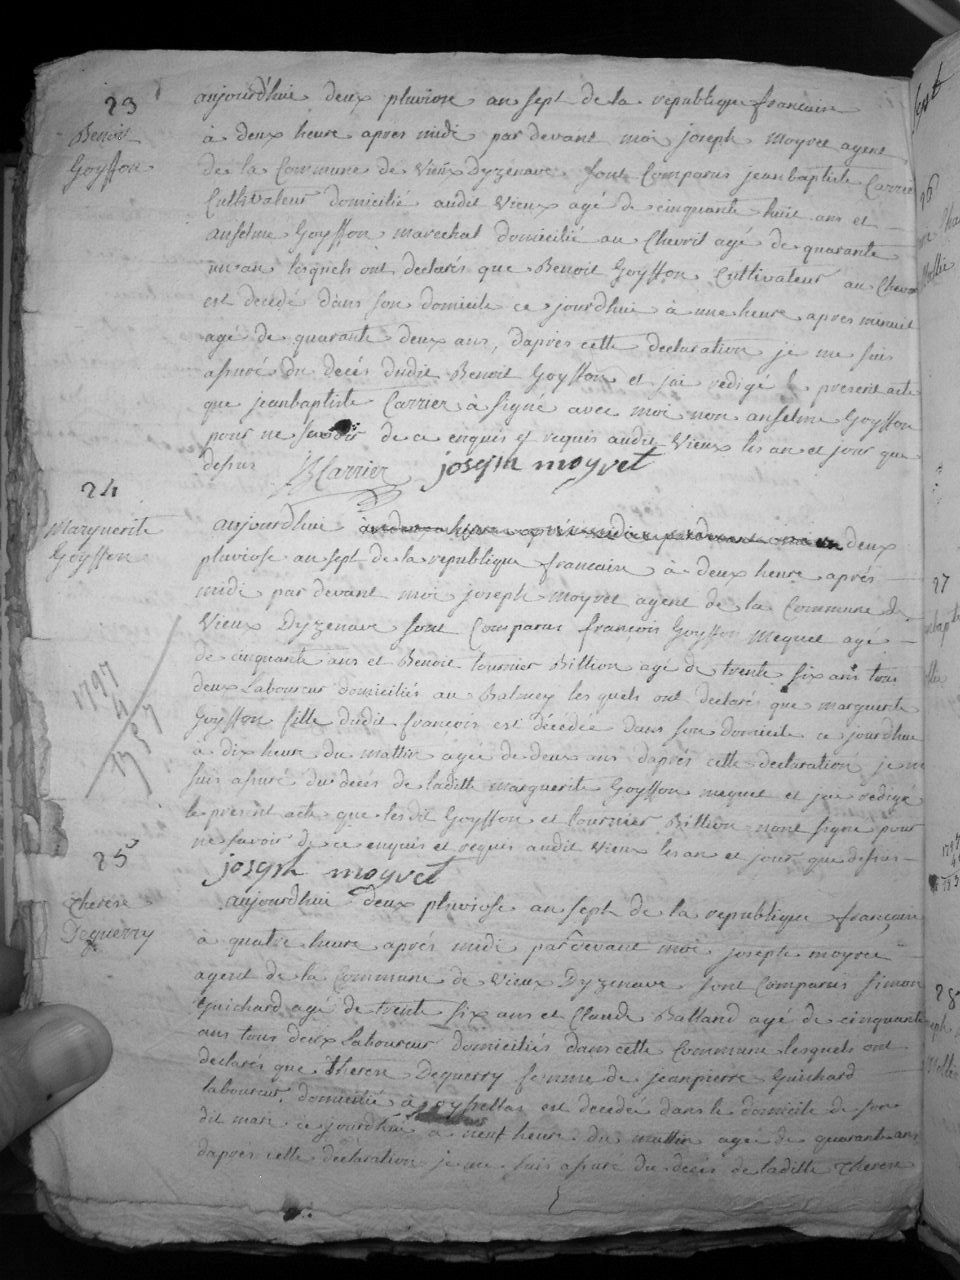 23
Benoit
Goyffon
aujourd'huie deux pluviose an sept de la republique francaise
à deux heure apres midi par devant moi joseph moyret agent
de la Commune de Vieux Dyzenave sont Comparus jeanbaptiste Carrier
Cultivateur domicilié audit Vieux agé de cinquante huit ans et
anselme Goyffon marechal domicilié au Chevril agé de quarante
un an lesquels ont declarés que Benoit Goyffon Cultivateur au
est decedé dans son domicile ce jourdhuie à une heure apres minuit
agé de quarante deux ans, daprès cette declaration je me suis
assuré du decés dudit Benoit Goyffon et jai redigé le present acte
que jeanbaptiste Carrier à signé avec moi non anselme Goyffon
pour ne savoir de ce enquis et requis audit Vieux les an et jour que
dessus JB Carrier joseph moyret
24
Marguerite
Goyffon
aujourdhuie deux
pluviose an sept de la republique francaise à deux heure aprés
midi par devant moi joseph moyret agent de la Commune de
Vieux Dyzenave sont Comparus francois Goyffon mequet agé
de cinquante ans et Benoit tournier Billion agé de trente six ans tous
deux Laboureur domiciliés au Balmey les quels ont declaré que marguerite
Goyffon fille dudit françois est décédée dans son domicile ce jourdhuie
a dix heure du mattin agée de deux ans daprés cette declaration je me
suis assuré du decés de laditte marguerite Goyffon mequet et jai redigé
le present acte que lesdit Goyffon et tournier Billion nont signe pour
ne savoir de ce enquis et requis audit Vieux les an et jour que dessus
joseph moyret
1797
4
1757
25
Therese
Deguerry
aujourdhuie deux pluviose an sept de la republique francaise
à quatre heure aprés midi par devant moi joseph moyret
agent de la Commune de Vieux Dyzenave sont Comparus simon
Guichard agé de trente six ans et Claude Balland agé de cinquante
ans tous deux Laboureur domiciliés dans cette Commune lesquels ont
declarés que Therese Deguerry femme de jeanpierre Guichard
laboureur, domicilié à est decedée dans le domicile de son
dit mari ce jourdhuie à neuf heure du mattin agée de quarante ans
daprés cette déclaration je me suis assuré du decés de laditte Therese